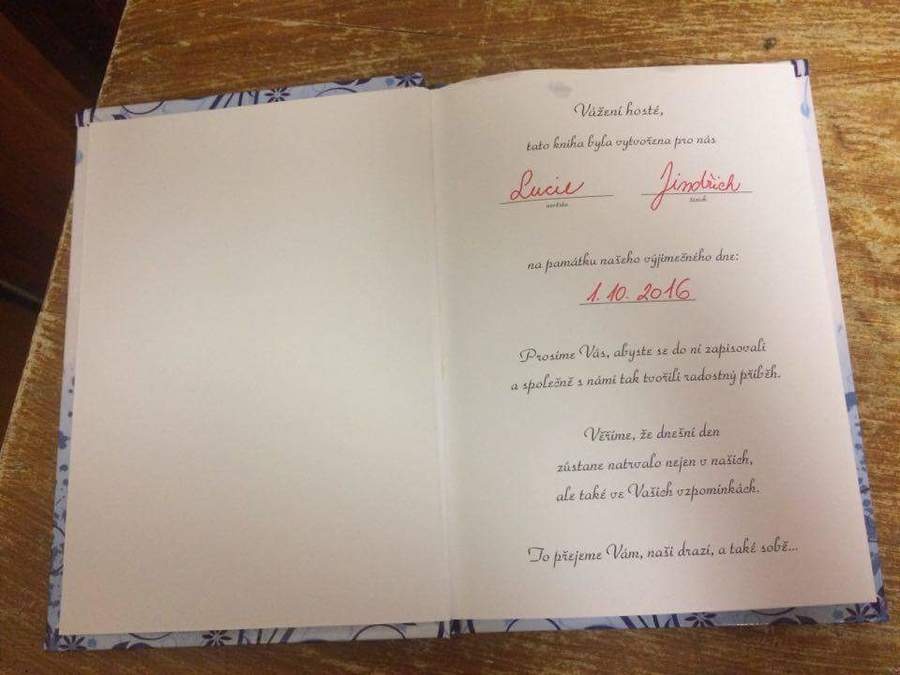 Vážení hosté,
tato kniha byla vytvořena pro nás
Lucie Jindřich
nevěsta ženich
na památku našeho výjimečného dne:
1. 10. 2016
Prosíme Vás, abyste se do ní zapisovali
a společně s námi tak tvořili radostný příběh.
Věříme, že dnešní den
zůstane natrvalo nejen v našich,
ale také ve Vašich vzpomínkách.
To přejeme Vám, naši drazí, a také sobě...